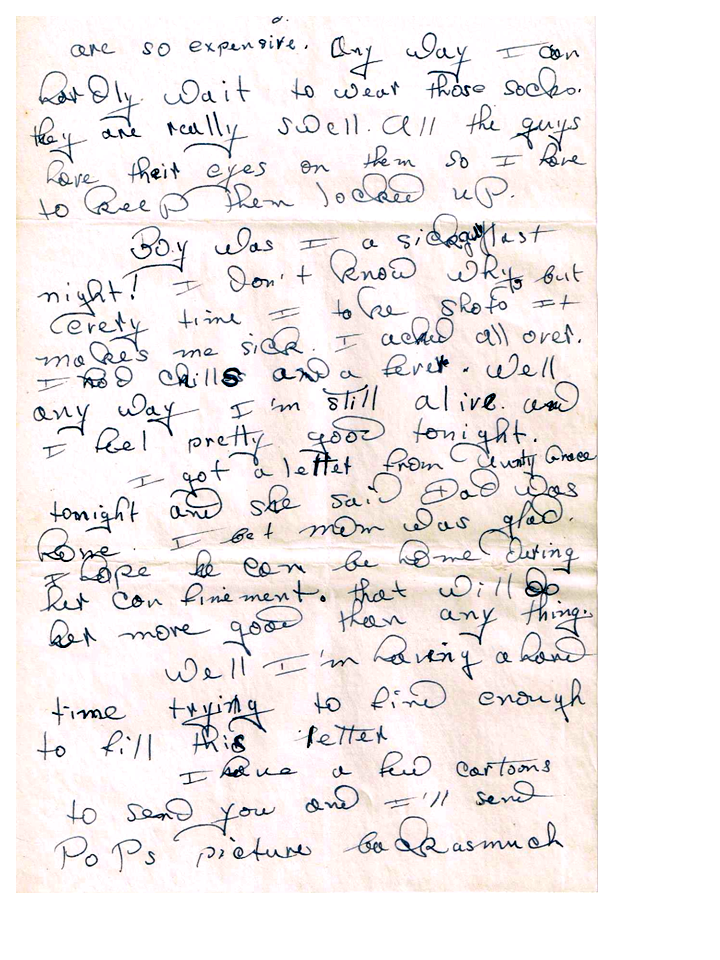 are so expensive. Any way I can
hardly wait to wear those socks.
they are really swell. All the guys
have their eyes on them so I have
to keep them locked up.
Boy was I a sick guy last
night! I don't know why but
every time I take shots it
makes me sick. I ached all over.
I had chills and a fever. Well
any way I'm still alive. and
I feel pretty good tonight.
I got a letter from Aunty Grace
tonight and she said Dad was
home. I bet mom was glad.
I hope he can be home during
her confinement. that will do
her more good than any thing.
Well I'm having a hard
time trying to find enough
to fill this letter
I have a few cartoons
to send you and I'll send
PoPs picture back as much